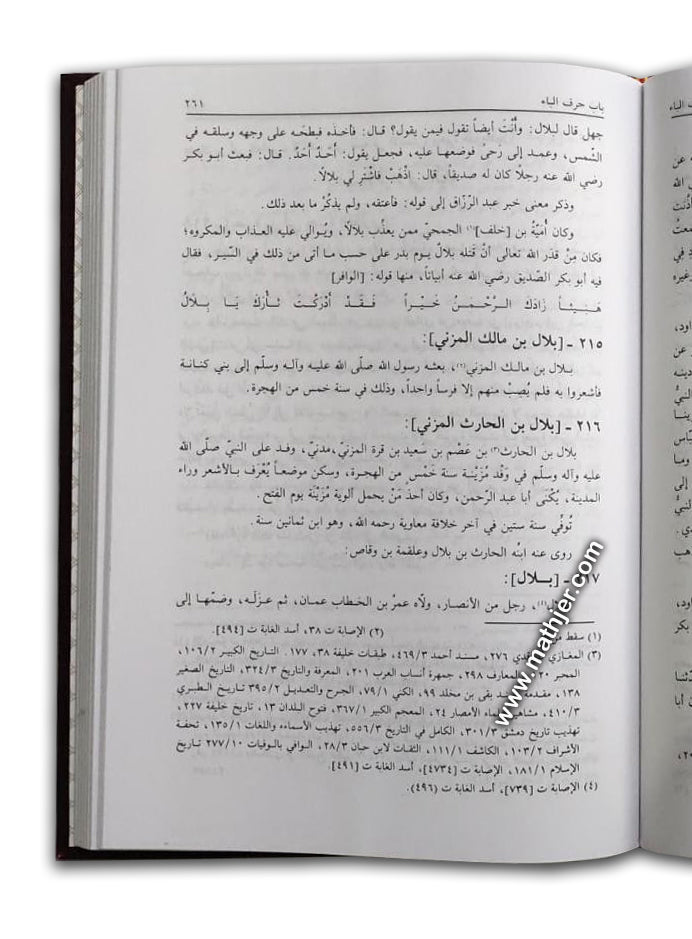 باب حرف الباء ٢٦١
جهل قال لبلال: وأَنْتَ أيضاً تقول فيمن يقول؟ قال: فأخذه فبطحَه على وجهه وسلقه في
الشّمس، وعمد إلى رَحىً فوضعها عليه، فجعل يقول: أَحَدٌ أَحَدٌ. قال: فبعث أبو بكر
رضي الله عنه رجلًا كان له صديقاً، قال: اذْهَبْ فاشْتَرِ لي بلالًا.
وذكر معنى خبر عبد الرّزّاق إلى قوله: فأعتقه، ولم يذكُرْ ما بعد ذلك.
وكان أُمَيَّةُ بن [خلف](١) الجمحيّ ممن يعذِّب بلالًا، ويُوالي عليه العذاب والمكروه؛
فكان مِنْ قدَر الله تعالى أنْ قتله بلالٌ يوم بدر على حسب ما أتى من ذلك في السِّير، فقال
فيه أبو بكر الصّديق رضي الله عنه أبياتاً، منها قوله: [الوافر]
هَنِيئاً زَادَكَ الرَّحْمَنُ خَيْراً فَقَدْ أَدْرَكْتَ ثَأْرَكَ يَا بِلَالُ
٢١٥ ـ [بلال بن مالك المزني]:
بلال بن مالك المزني(٢)، بعثه رسول الله صلّى الله عليه وآله وسلّم إلى بني كنانة
فأشعروا به فلم يُصِبْ منهم إلا فرساً واحداً، وذلك في سنة خمس من الهجرة.
٢١٦ ـ [بلال بن الحارث المزني]:
بلال بن الحارث(٣) بن عَصْم بن سَعيد بن قرة المزنيّ، مدنيّ، وفد على النبيّ صلّى الله
عليه وآله وسلّم في وَفْد مُزَيْنة سنة خَمْس من الهجرة، وسكن موضعاً يُعْرَف بالأشعر وراء
المدينة، يُكْنَى أبا عبد الرّحمن، وكان أحدَ مَنْ يحمل ألوية مُزَيْنَة يوم الفتح.
تُوفِّي سنة ستين في آخر خلافة معاوية رحمه الله، وهو ابن ثمانين سنة.
روى عنه ابنُه الحارث بن بلال وعلقمة بن وقاص:
٢١٧ ـ [بلال]:
(٤)، رجل من الأنصار، ولّاه عمرُ بن الخطاب عمان، ثم عزلَه، وضمّها إلى
(١) سقط في (٢) الإصابة ت ٣٨، أسد الغابة ت [٤٩٤].
(٣) المغازي ٢٧٦، مسند أحمد ٤٦٩/٣، طبقات خليفة ٣٨، ١٧٧. التاريخ الكبير ١٠٦/٢،
المحبر المعارف ٢٩٨، جمهرة أنساب العرب ٢٠١، المعرفة والتاريخ ٣٢٤/٣، التاريخ الصغير
١٣٨، بقى بن مخلد ٩٩، الكنى ٧٩/١، الجرح والتعديل ٣٩٥/٢ تاريخ الطبري
٤١٠/٣، الأمصار ٢٤، المعجم الكبير ٣٦٧/١، فتوح البلدان ١٣، تاريخ خليفة ٢٢٧،
تهذيب تاريخ دمشق ٣٠١/٣، الكامل في التاريخ ٥٥٦/٣، تهذيب الأسماء واللغات ١٣٥/١، تحفة
الأشراف ١٠٣/٢، الكاشف ١١١/١، الثقات لابن حبان ٢٨/٣، الوافي بالوفيات ٢٧٧/١٠ تاريخ
الإسلام ١٨١/١، الإصابة ت [٧٣٤]، أسد الغابة ت [٤٩١].
(٤) الإصابة ت [٧٣٩]، أسد الغابة ت (٤٩٦).
www.mathjer.com